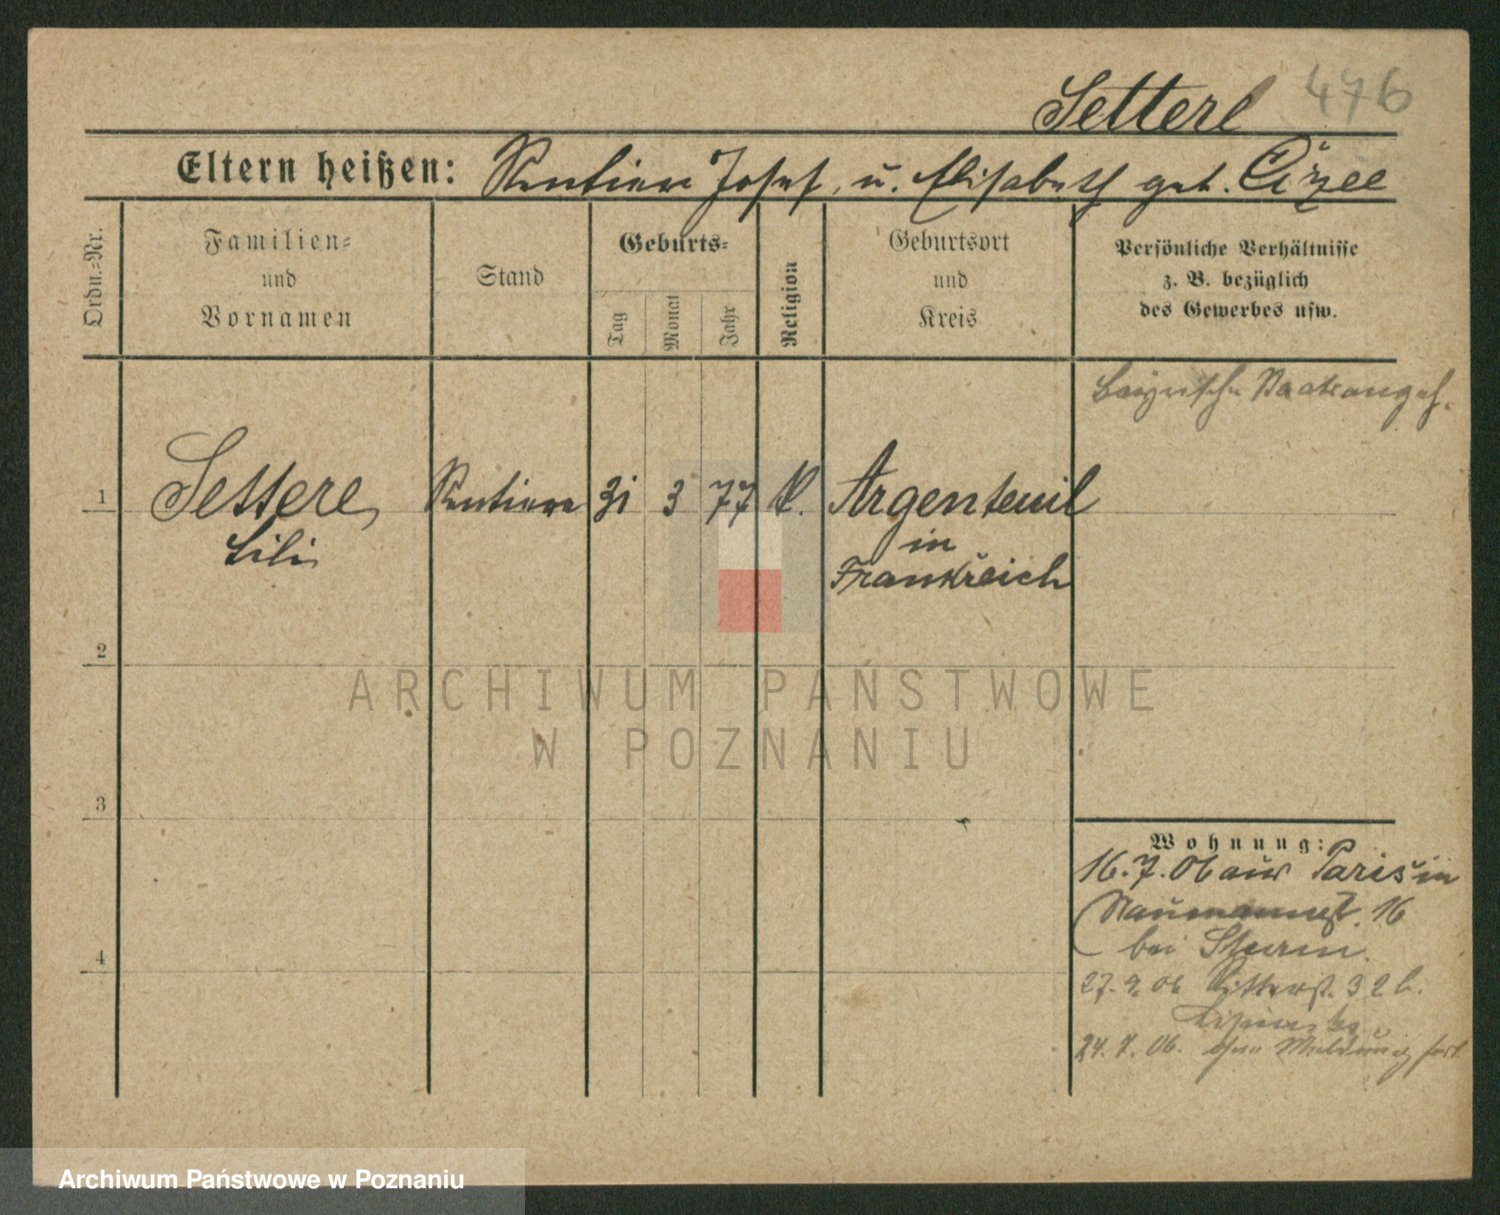 Setterl 476
Eltern heißen: Rentiere Josef, u. Elisabeth geb.
Ordn.-Nr.
Familien-
und
Vornamen
Stand
Geburts-
Tag
Monat
Jahr
Religion
Geburtsort
und
Kreis
Persönliche Verhältnisse
z. B. bezüglich
des Gewerbes usw.
bayrische Staatsangeh.
1 Setterl, Rentiere 31 3 77 K. Argenteuil
Lili
in
Frankreich
2
ARCHIWUM PAŃSTWOWE
W POZNANIU
3
Wohnung:
16.7.06 aus Paris in
Naumannst. 16
bei Sturm.
4
27.9.06 Ritterst. 32 b.
24. 06. ohne Meldung fort
Archiwum Państwowe w Poznaniu